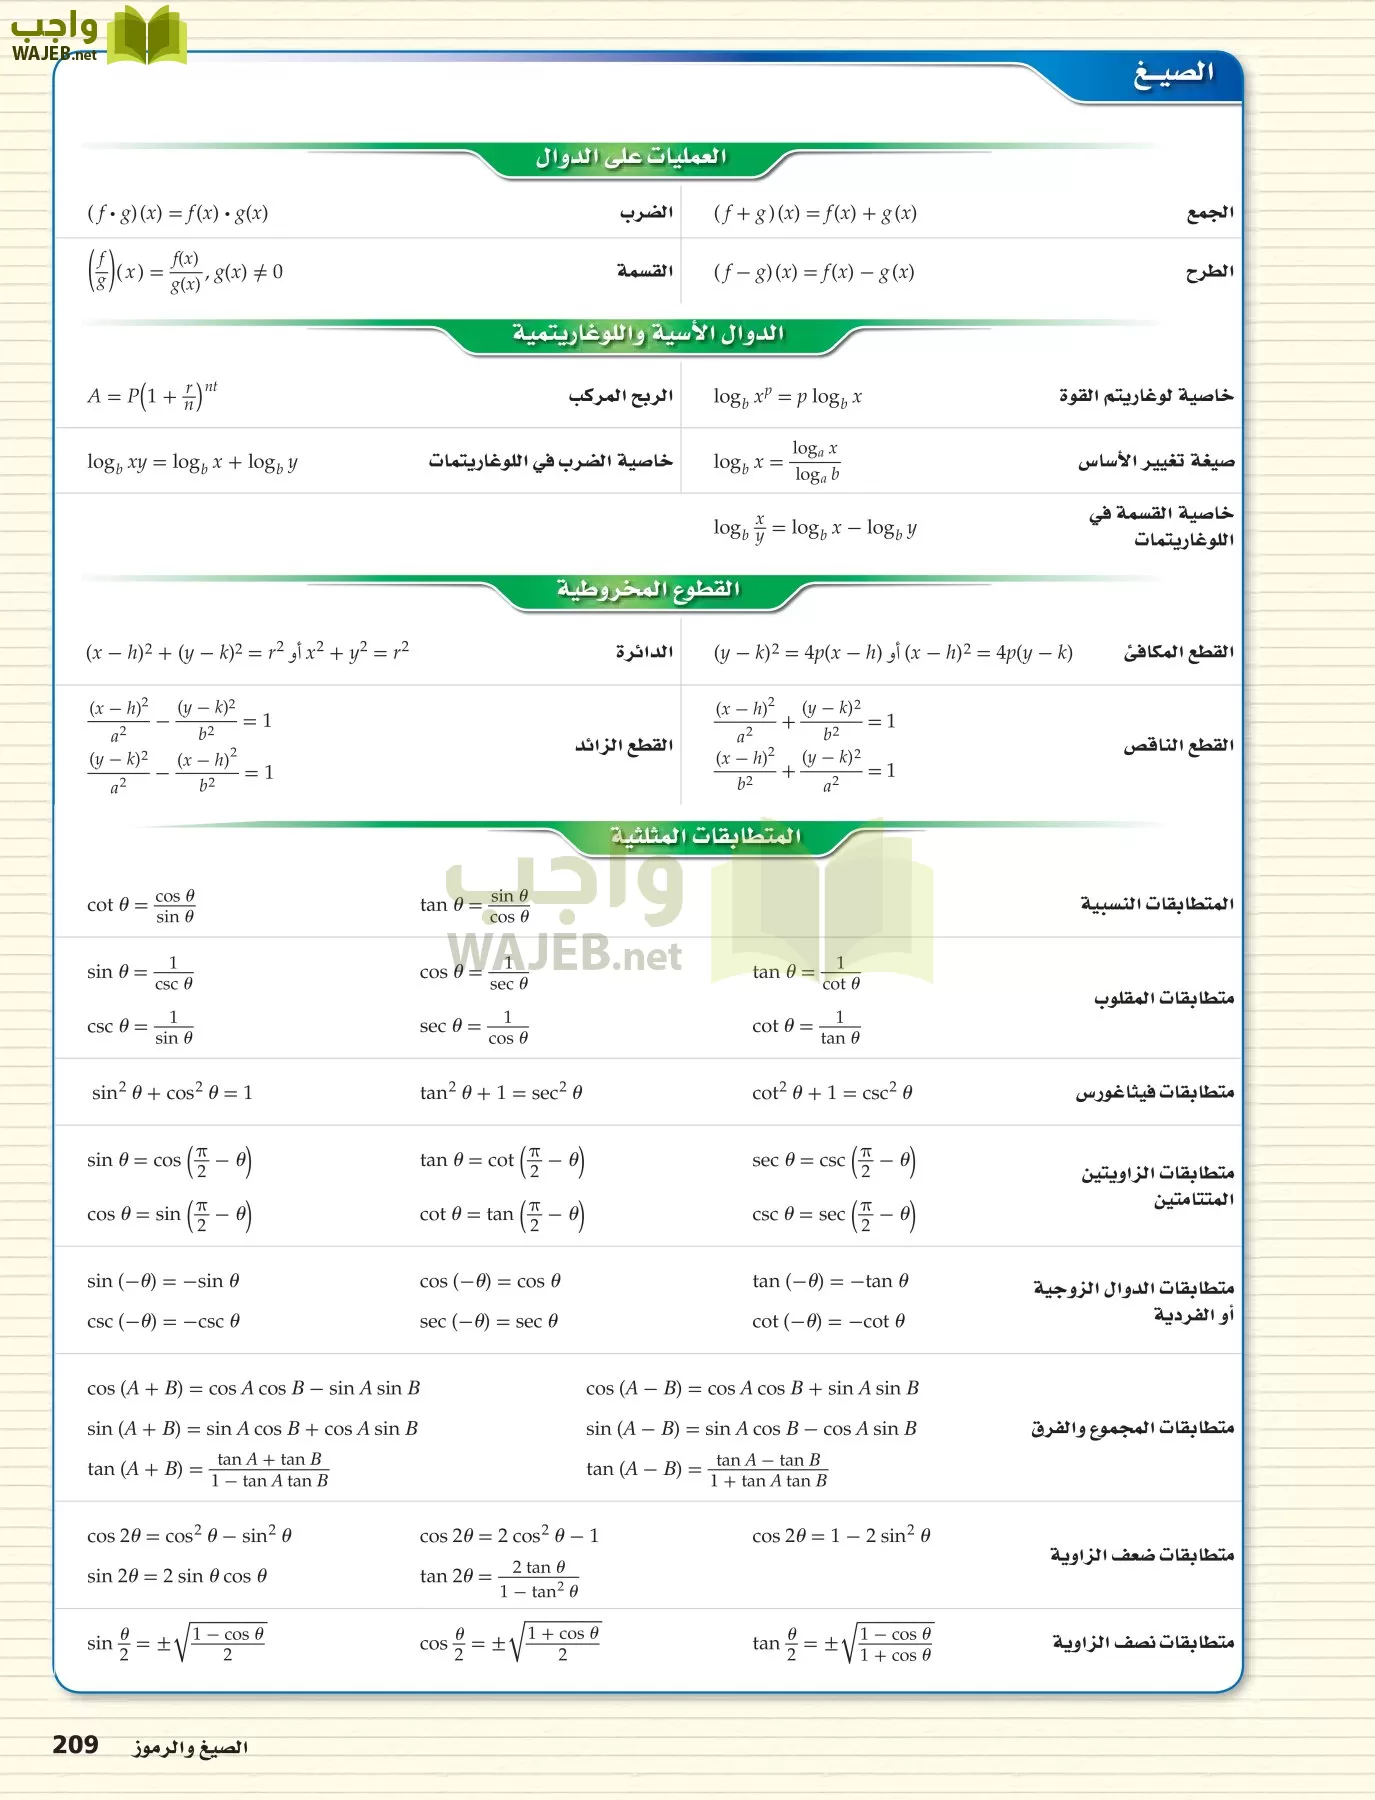 واجب
WAJEB.net
الصيـــغ
العمليات على الدوال
الجمع (f + g)(x) = f(x) + g(x) الضرب (f • g)(x) = f(x) • g(x)
الطرح (f − g)(x) = f(x) − g(x) القسمة (f/g)(x) = f(x)/g(x), g(x) ≠ 0
الدوال الأسية واللوغاريتمية
خاصية لوغاريتم القوة log_b x^p = p log_b x الربح المركب A = P(1 + r/n)^nt
صيغة تغيير الأساس log_b x = log_a x / log_a b خاصية الضرب في اللوغاريتمات log_b xy = log_b x + log_b y
خاصية القسمة في
اللوغاريتمات log_b x/y = log_b x − log_b y
القطوع المخروطية
القطع المكافئ (y − k)² = 4p(x − h) أو (x − h)² = 4p(y − k) الدائرة (x − h)² + (y − k)² = r² أو x² + y² = r²
القطع الناقص (x − h)²/a² + (y − k)²/b² = 1
(x − h)²/b² + (y − k)²/a² = 1
القطع الزائد (x − h)²/a² − (y − k)²/b² = 1
(y − k)²/a² − (x − h)²/b² = 1
المتطابقات المثلثية
واجب
WAJEB.net
المتطابقات النسبية
cot θ = cos θ/sin θ tan θ = sin θ/cos θ
متطابقات المقلوب
sin θ = 1/csc θ cos θ = 1/sec θ tan θ = 1/cot θ
csc θ = 1/sin θ sec θ = 1/cos θ cot θ = 1/tan θ
متطابقات فيثاغورس
sin² θ + cos² θ = 1 tan² θ + 1 = sec² θ cot² θ + 1 = csc² θ
متطابقات الزاويتين
المتتامتين
sin θ = cos (π/2 − θ) tan θ = cot (π/2 − θ) sec θ = csc (π/2 − θ)
cos θ = sin (π/2 − θ) cot θ = tan (π/2 − θ) csc θ = sec (π/2 − θ)
متطابقات الدوال الزوجية
أو الفردية
sin (−θ) = −sin θ cos (−θ) = cos θ tan (−θ) = −tan θ
csc (−θ) = −csc θ sec (−θ) = sec θ cot (−θ) = −cot θ
متطابقات المجموع والفرق
cos (A + B) = cos A cos B − sin A sin B cos (A − B) = cos A cos B + sin A sin B
sin (A + B) = sin A cos B + cos A sin B sin (A − B) = sin A cos B − cos A sin B
tan (A + B) = (tan A + tan B)/(1 − tan A tan B) tan (A − B) = (tan A − tan B)/(1 + tan A tan B)
متطابقات ضعف الزاوية
cos 2θ = cos² θ − sin² θ cos 2θ = 2 cos² θ − 1 cos 2θ = 1 − 2 sin² θ
sin 2θ = 2 sin θ cos θ tan 2θ = 2 tan θ/(1 − tan² θ)
متطابقات نصف الزاوية
sin θ/2 = ±√((1 − cos θ)/2) cos θ/2 = ±√((1 + cos θ)/2) tan θ/2 = ±√((1 − cos θ)/(1 + cos θ))
الصيغ والرموز 209